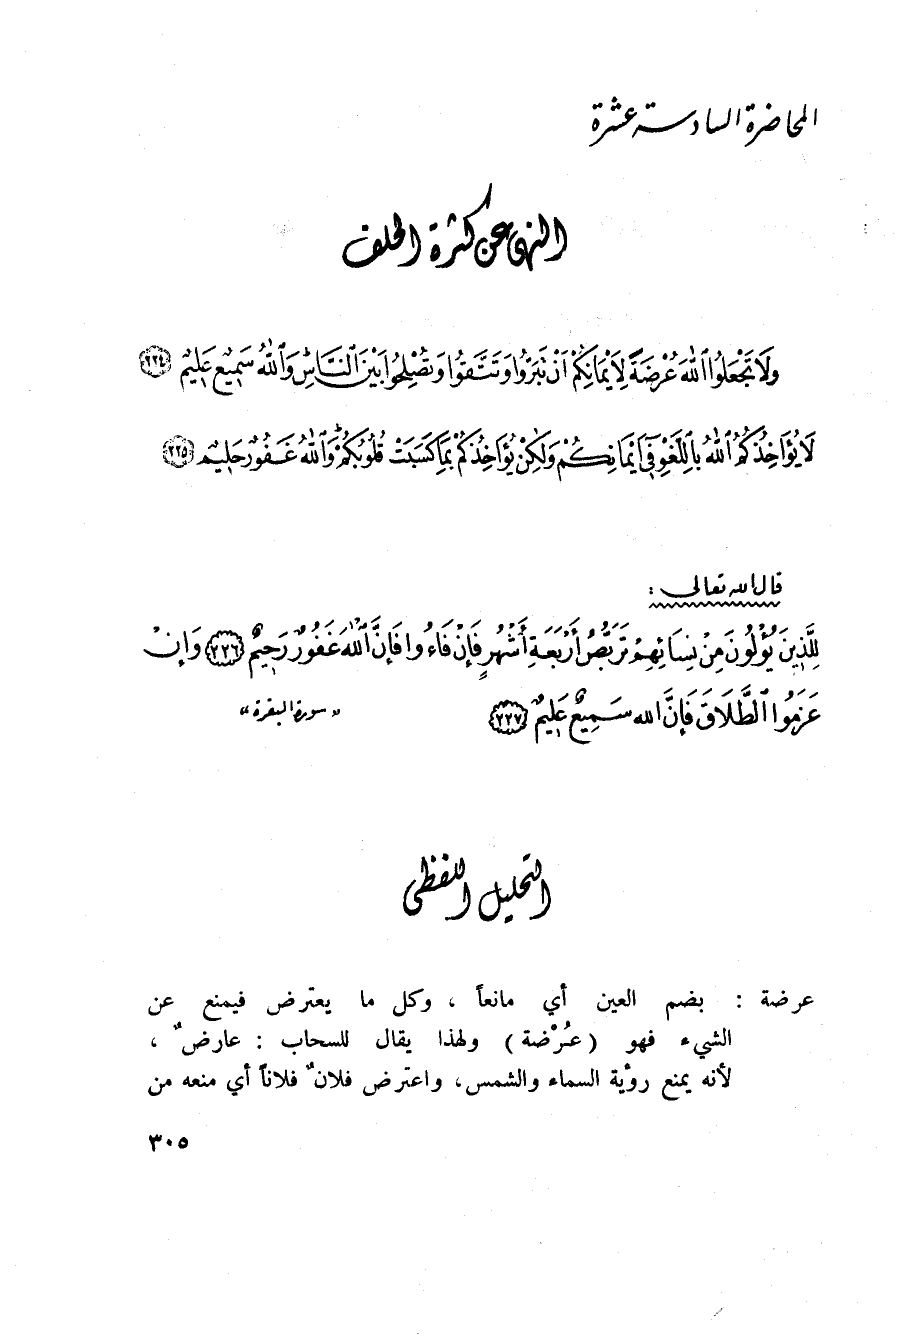 المحاضرة السادسة عشرة
النهي عن كثرة الحلف
وَلَا تَجْعَلُوا اللَّهَ عُرْضَةً لِأَيْمَانِكُمْ أَنْ تَبَرُّوا وَتَتَّقُوا وَتُصْلِحُوا بَيْنَ النَّاسِ وَاللَّهُ سَمِيعٌ عَلِيمٌ ٢٢٤
لَا يُؤَاخِذُكُمُ اللَّهُ بِاللَّغْوِ فِي أَيْمَانِكُمْ وَلَكِنْ يُؤَاخِذُكُمْ بِمَا كَسَبَتْ قُلُوبُكُمْ وَاللَّهُ غَفُورٌ حَلِيمٌ ٢٢٥
قال الله تعالى :
لِلَّذِينَ يُؤْلُونَ مِنْ نِسَائِهِمْ تَرَبُّصُ أَرْبَعَةِ أَشْهُرٍ فَإِنْ فَاءُوا فَإِنَّ اللَّهَ غَفُورٌ رَحِيمٌ ٢٢٦ وَإِنْ
عَزَمُوا الطَّلَاقَ فَإِنَّ الله سَمِيعٌ عَلِيمٌ ٢٢٧ « سورة البقرة »
التحليل اللفظي
عرضة : بضم العين أي مانعاً ، وكل ما يعترض فيمنع عن
الشيء فهو ( عُرْضة ) ولهذا يقال للسحاب : عارضٌ ،
لأنه يمنع رؤية السماء والشمس، واعترض فلانٌ فلاناً أي منعه من
٣٠٥